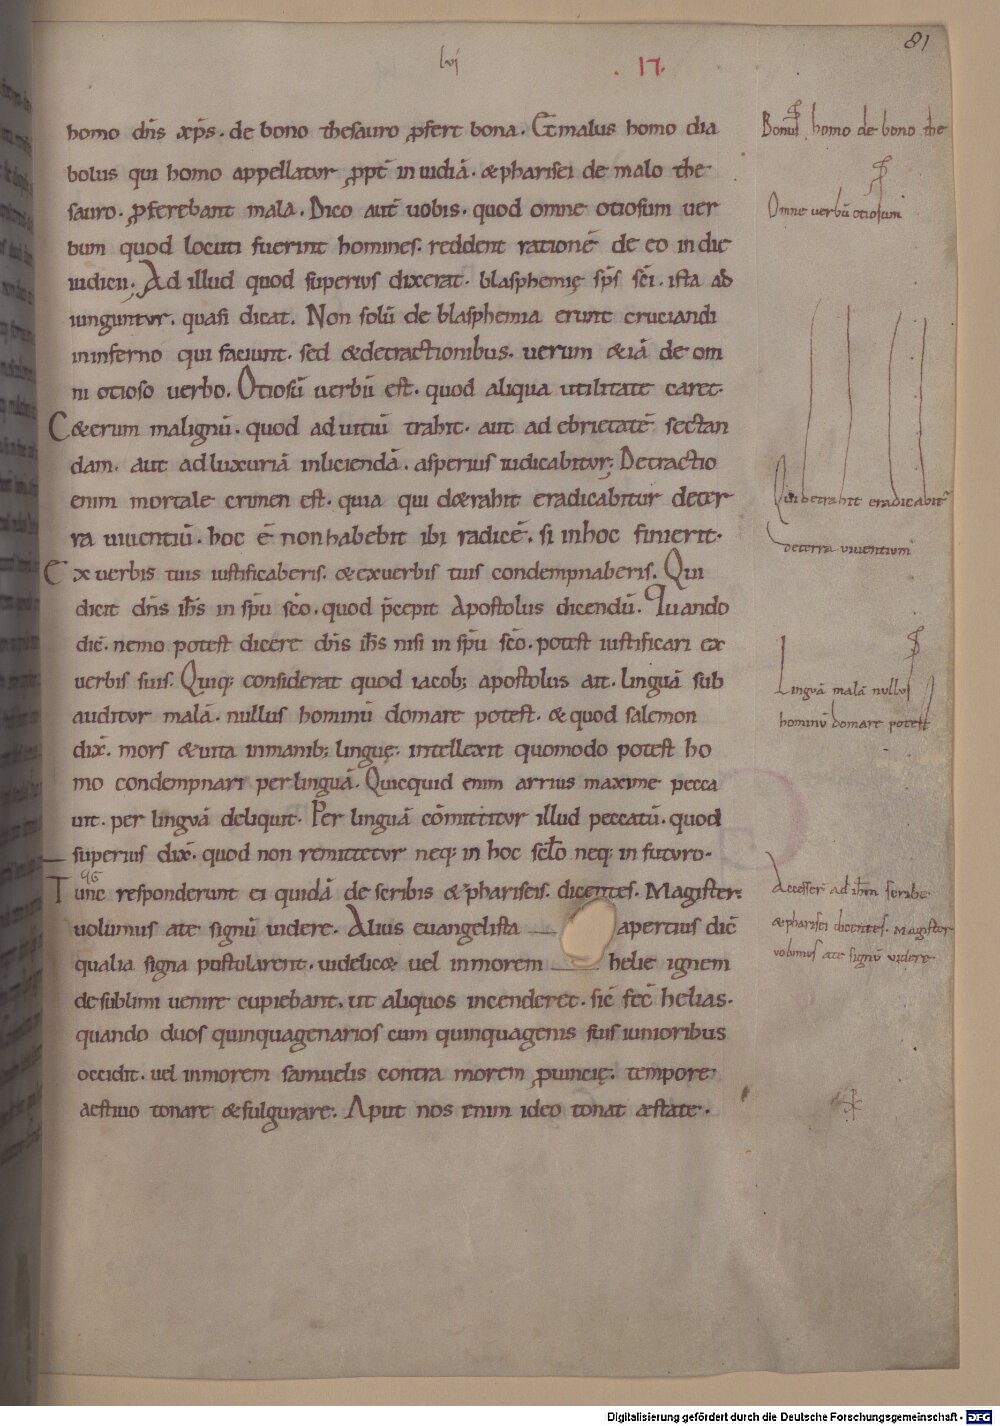 81
lvj
. 17.
homo dn̄s xp̄s. de bono thesauro ꝓfert bona. Et malus homo dia
bolus qui homo appellatur ꝓpt̄ inuidiā. & pharisei de malo the
sauro. ꝓferebant mala. Dico aut̄ uobis. quod omne otiosum uer
bum quod locuti fuerint homines. reddent rationē de eo in die
iudicii. Ad illud quod superius dixerat. blasphemię sp̄s sc̄i. ista ad
iunguntur. quasi dicat. Non solū de blasphemia erunt cruciandi
in inferno qui faciunt. sed & detractionibus. uerum & iā de om
ni otioso uerbo. Otiosū uerbū est. quod aliqua utilitate caret.
C&erum malignū. quod ad uitiū trahit. aut ad ebrietatē sectan
dam. aut ad luxuriā inliciendā. asperius iudicabitur. Detractio
enim mortale crimen est. quia qui d&rahit eradicabitur de ter
ra uiuentiū. hoc ē non habebit ibi radicē. si in hoc finierit.
Ex uerbis tuis iustificaberis. & ex uerbis tuis condempnaberis. Qui
dicit dn̄s ih̄s in sp̄u sc̄o. quod p̄cepit Apostolus dicendū. Quando
dic̄. nemo potest dicere dn̄s ih̄s nisi in sp̄u sc̄o. potest iustificari ex
uerbis suis. Quiq; considerat quod iacob; apostolus ait. linguā sub
auditur malā. nullus hominū domare potest. & quod salemon
dix̄. mors & uita in manib; linguę. intellexit quomodo potest ho
mo condempnari per linguā. Quicquid enim arrius maxime pecca
uit. per linguā deliquit. Per linguā cōmittitur illud peccatū. quod
superius dix̄. quod non remittetur neq; in hoc sclo neq; in futuro.
Tunc responderunt ei quidā de scribis & phariseis. dicentes. Magister
uolumus a te signū uidere. Alius euangelista apertius dic̄
qualia signa postularent. uidelic& uel in morem helie ignem
de sublimi uenire cupiebant. ut aliquos incenderet. sic̄ fec̄ helias.
quando duos quinquagenarios cum quinquagenis suis iunioribus
occidit. uel in morem samuelis contra morem ꝓuincię. tempore
aestiuo tonare & fulgurare. Aput nos enim ideo tonat aestate.
Bonus homo de bono the
Omne uerbū otiosum
Qui detrahit eradicabit᷒
de terra uiuentium
Linguā malā nullus
hominū domare potest
Accesser̄ ad ih̄m scribe
& pharisei dicentes. Magister
uolumus a te signū uidere
Digitalisierung gefördert durch die Deutsche Forschungsgemeinschaft - DFG